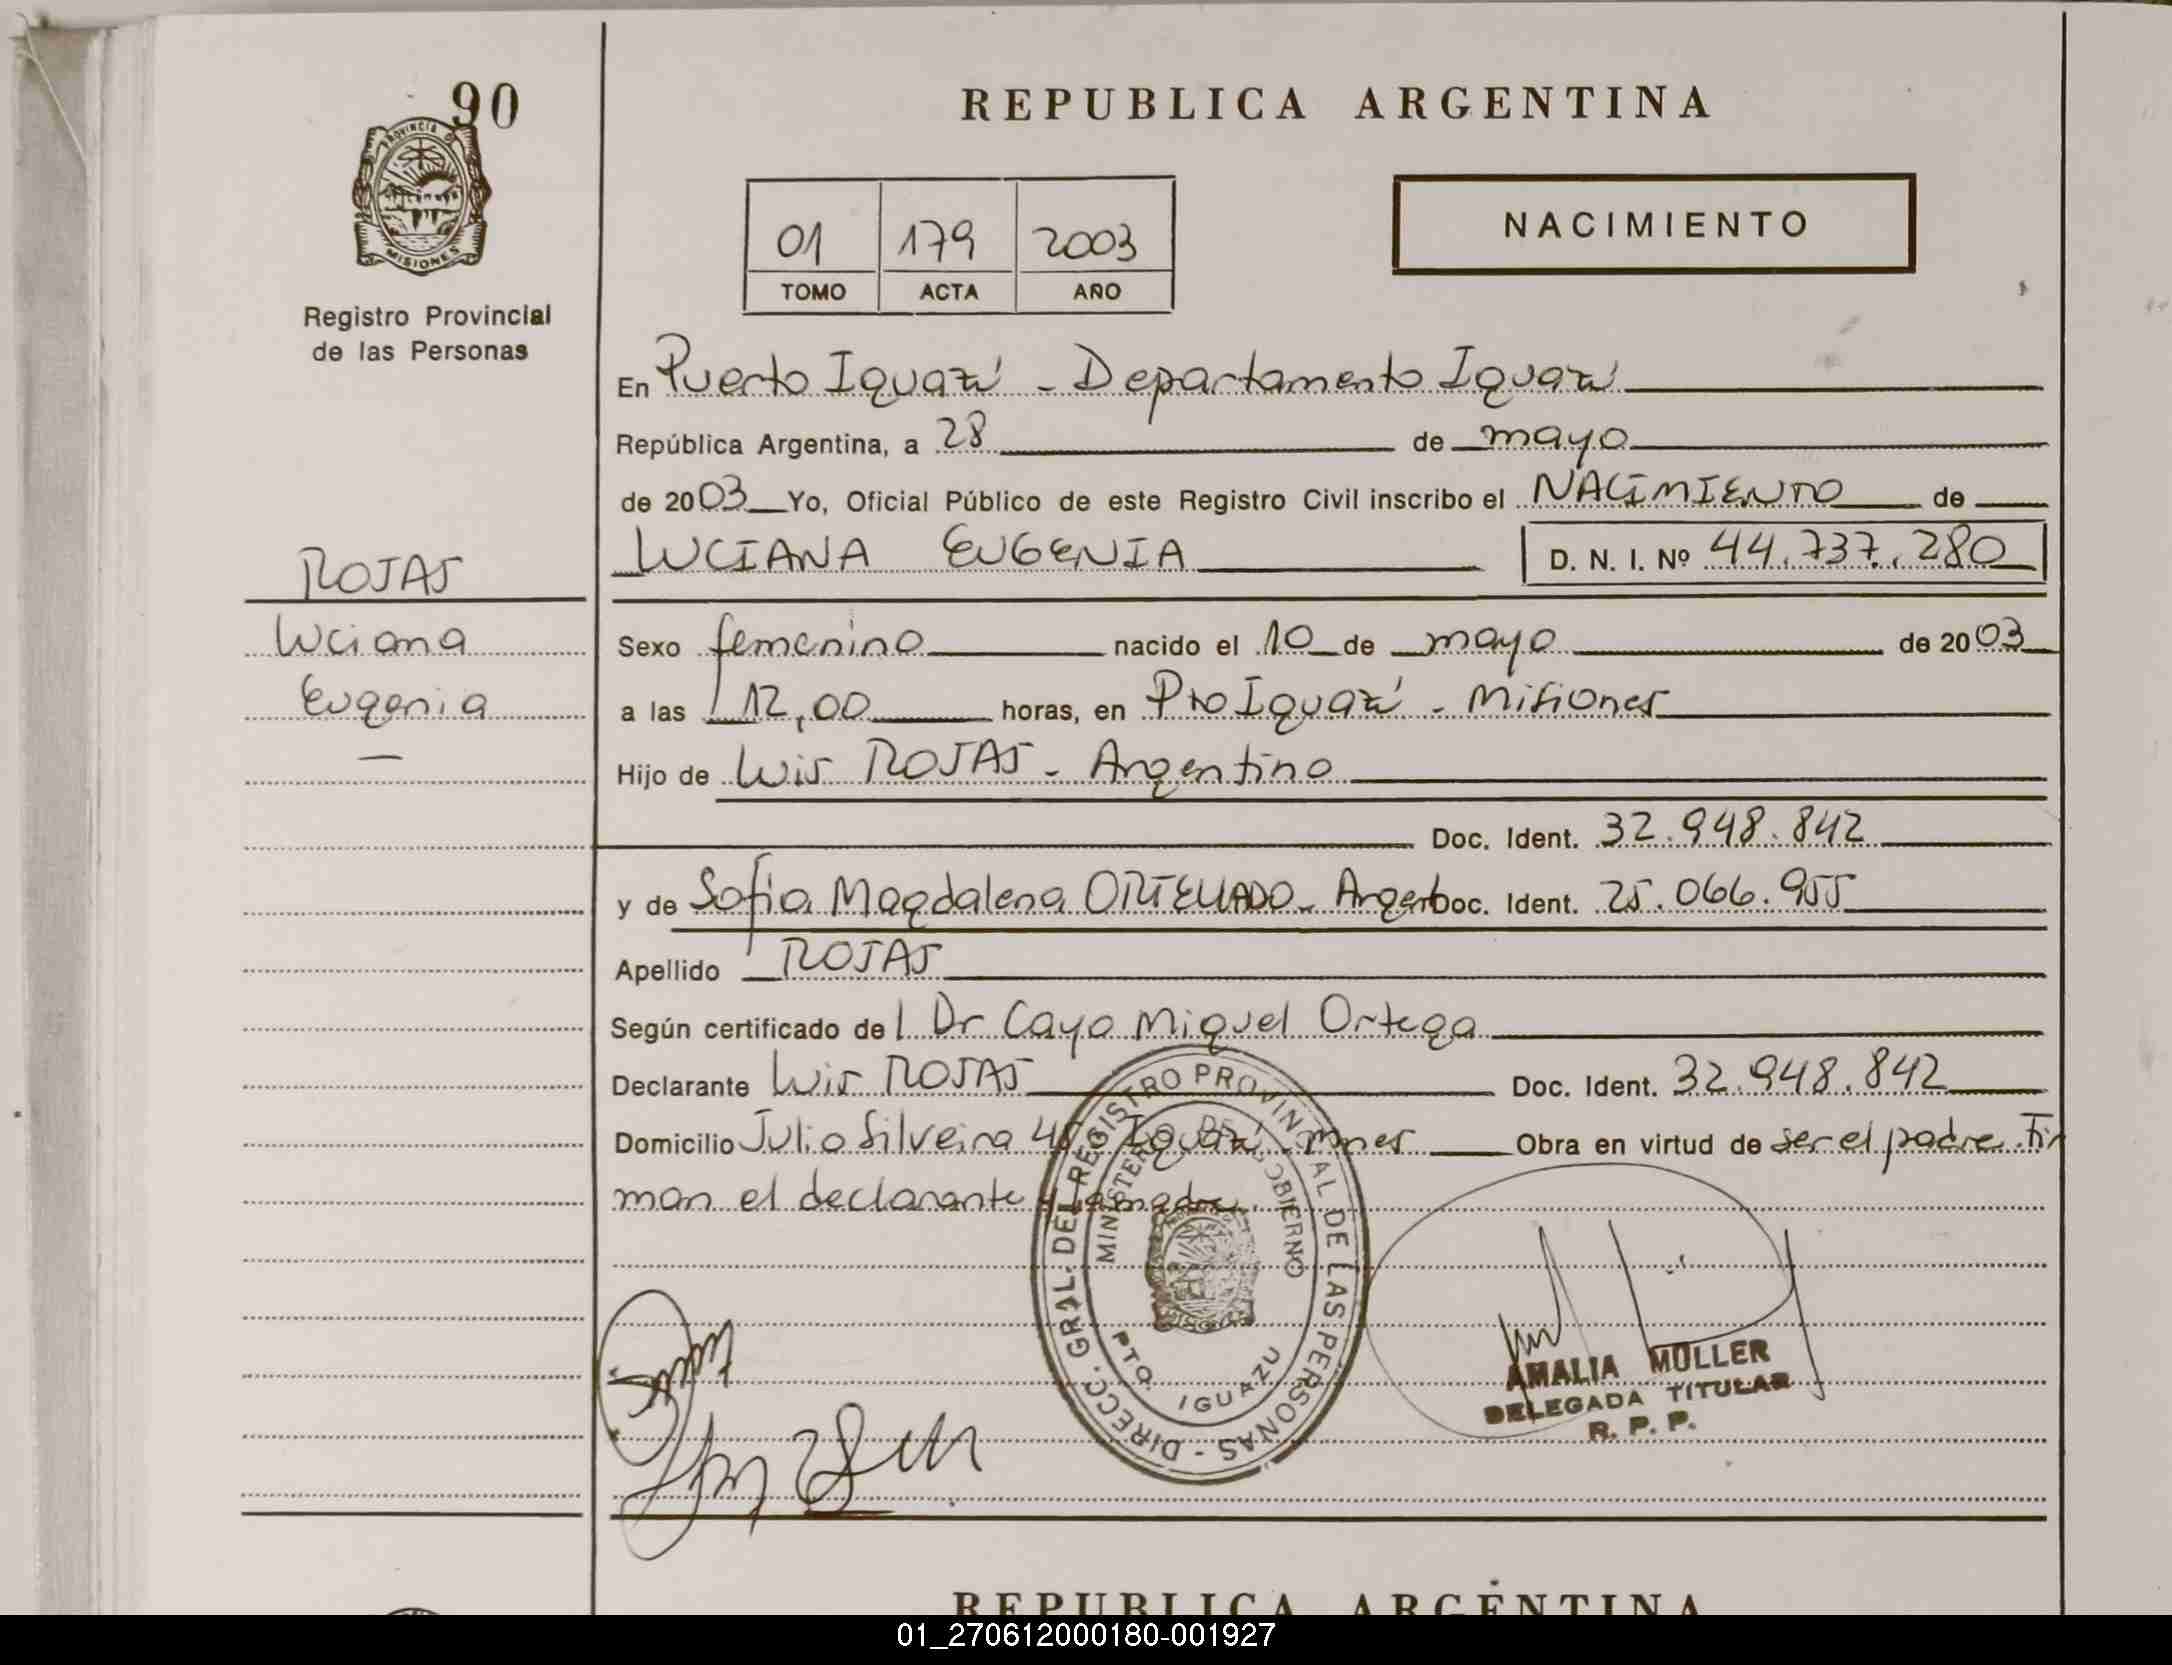 90
PROVINCIA DE
MISIONES
Registro Provincial
de las Personas
REPUBLICA ARGENTINA
01 179 2003
TOMO ACTA AÑO
NACIMIENTO
En Puerto Iguazú - Departamento Iguazú
República Argentina, a 28 de mayo
de 2003 Yo, Oficial Público de este Registro Civil inscribo el NACIMIENTO de
LUCIANA EUGENIA D. N. I. Nº 44.737.280
ROJAS
Luciana
Eugenia
—
Sexo femenino nacido el 10 de mayo de 2003
a las 12,00 horas, en Pto Iguazú - Misiones
Hijo de Luis ROJAS - Argentino
Doc. Ident. 32.948.842
y de Sofia Magdalena ORTELLADO - Argent Doc. Ident. 25.066.955
Apellido ROJAS
Según certificado del Dr Cayo Miguel Ortega
Declarante Luis ROJAS Doc. Ident. 32.948.842
Domicilio Julio Silveira Iguazú Mnes Obra en virtud de ser el padre. Fir
man el declarante y la madre.
DIRECC. GRAL. DEL REGISTRO PROVINCIAL DE LAS PERSONAS -
MINISTERIO DE GOBIERNO
PTO. IGUAZU
AMALIA MULLER
DELEGADA TITULAR
R. P. P.
REPUBLICA ARGENTINA
01_270612000180-001927